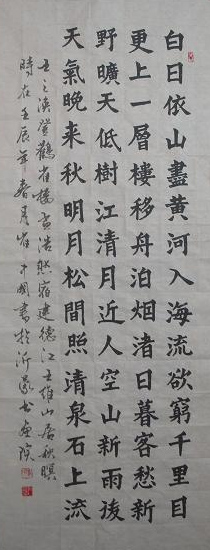 白日依山盡黄河入海流欲窮千里目
更上一層樓移舟泊烟渚日暮客愁新
野曠天低樹江清月近人空山新雨後
天氣晚来秋明月松間照清泉石上流
王之渙登鸛雀樓孟浩然宿建德江王维山居秋暝
時在壬辰年春月崔國書於沂蒙书画院